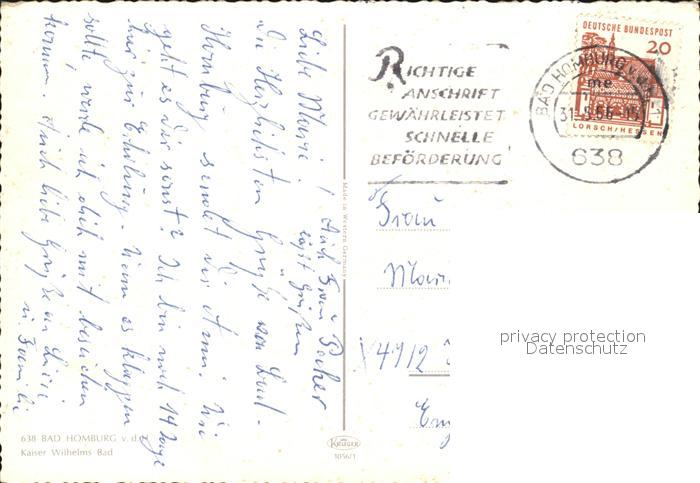 Liebe Marie!
Die Herzlichsten Grüße von Bad-
Homburg sendet dir Anni. Wie
geht es dir sonst? Ich bin noch 14 Tage
hier zur Erholung. Wenn es klappen
sollte, werde ich dich mit besuchen
kommen. Auch liebe Grüße an Luise
u. Familie
Auch Frau
läßt Grüßen
RICHTIGE
ANSCHRIFT
GEWÄHRLEISTET
SCHNELLE
BEFÖRDERUNG
DEUTSCHE BUNDESPOST
20
LORSCH/HESSEN
BAD HOMBURG v.d.H.
me
638
Made in Western Germany
Frau
privacy protection
Datenschutz
638 BAD HOMBURG v. d.
Kaiser Wilhelms Bad
KRÜGER
1056/1